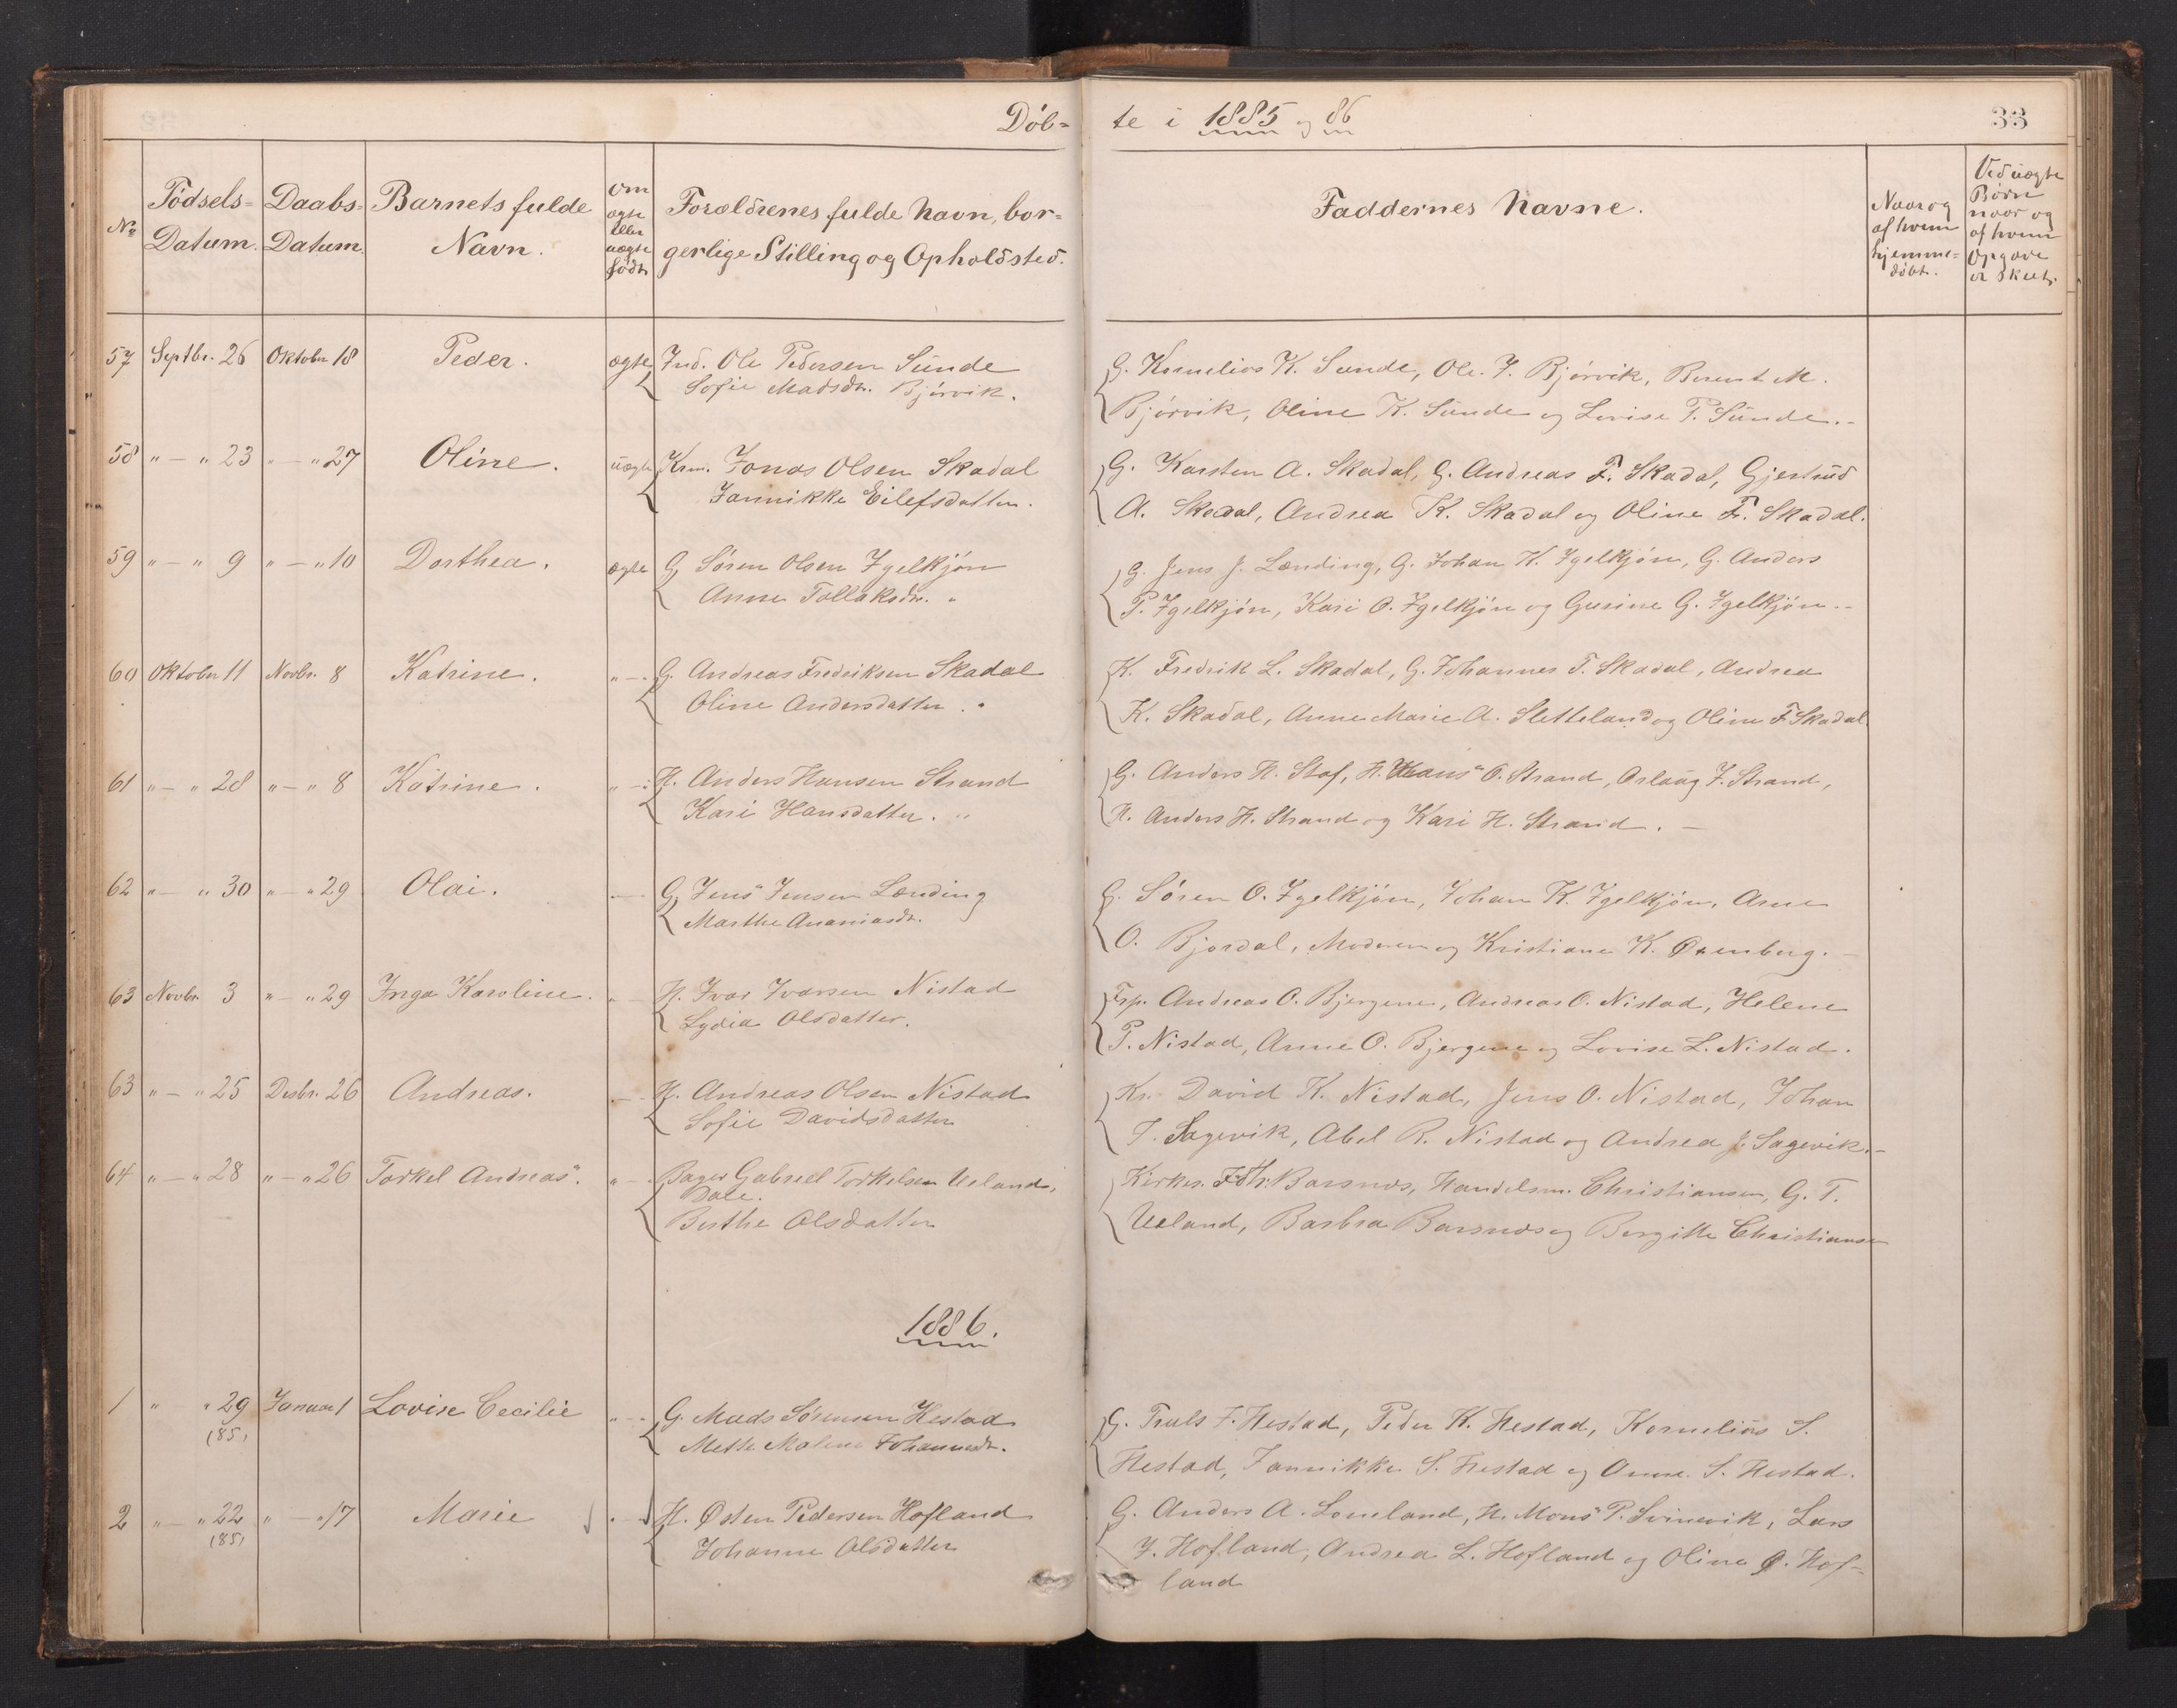 Döb= te i 1885 og 86
33
No
Födsels= Datum.
Daabs= Datum.
Barnets fulde Navn.
Om ægte eller uægte födt
Forældrenes fulde Navn, bor=
gerlige Stilling og Opholdsted.
Faddernes Navne.
Naar og af hvem hjemme= döbt.
Ved uægte Börn naar og af hvem Opgave er skeet.
57 Septbr. 26 Oktober 18 Peder. ægte Ind. Ole Pedersen Sunde
Sofie Madsdr. Bjørvik.
G. Kornelius K. Sunde, Ole J. Bjørvik, Berent M.
Bjørvik, Oline K. Sunde og Lovise P. Sunde.-
58 " - " 23 " - " 27 Oline. uægte Krm. Jonas Olsen Skadal
Jannikke Eilefsdatter.
G. Karsten A. Skadal, G. Andreas F. Skadal, Gjertrud
A. Skadal, Andrea K. Skadal og Oline F. Skadal.
59 " - " 9 " - " 10 Dorthea. ægte G Søren Olsen Igelkjøn
Anne Tollaksdr. "
G. Jens J. Lænding, G. Johan K. Igelkjøn, G. Anders
P. Igelkjøn, Kari O. Igelkjøn og Gurine G. Igelkjøn.-
60 Oktober 11 Novbr. 8 Katrine. " - G. Andreas Fredriksen Skadal
Oline Andersdatter. "
K. Fredrik L. Skadal, G. Johannes T. Skadal, Andrea
K. Skadal, Anne Marie A. Sletteland og Oline F. Skadal.
61 " - " 28 " - " 8 Katrine. " - H. Anders Hansen Strand
Kari Hansdatter. "
G. Anders N. Staf, H. Hans O. Strand, Orlaug J. Strand,
H. Anders H. Strand og Kari H. Strand. -
62 " - " 30 " - " 29 Olai. " - G Jens Jensen Lænding
Marthe Ananiasdr.
G. Søren O. Igelkjøn, Johan K. Igelkjøn, Arne
O. Bjordal, Moderen og Kristiane K. Ørenberg. -
63 Novbr. 3 " - " 29 Inga Karoline. " - H. Ivar Ivarsen Nistad
Lydia Olsdatter.
Fsp. Andreas O. Bjergene, Andreas O. Nistad, Helene
P. Nistad, Anne O. Bjergene og Lovise L. Nistad.
63 " - " 25 Desbr. 26 Andreas. " - H. Andreas Olsen Nistad
Sofie Davidsdatter
Kr. David K. Nistad, Jens O. Nistad, Johan
T. Sagevik, Abel R. Nistad og Andrea J. Sagevik.-
64 " - " 28 " - " 26 Torkel Andreas. " - Bager Gabriel Torkelsen Ueland,
Dale.
Berthe Olsdatter
Kirkes. Barsnes, Handelsm. Christiansen, G. T.
Ueland, Barbra Barsnes og Bergitte Christiansen
1886.
1 " " 29 Januar 1 Lovise Cecilie " - G. Mads Sørensen Hestad
(85)
Mette Malene Johannesdr.
G. Truls J. Hestad, Peder K. Hestad, Kornelius S.
Hestad, Jannikke S. Hestad og Anne S. Hestad.
2 " - " 22 " - " 17 Marie " - H. Østen Pedersen Hofland
(85)
Johanne Olsdatter
G. Anders A. Loneland, H. Mons P. Svinevik, Lars
J. Hofland, Andrea L. Hofland og Oline O. Hof=
land